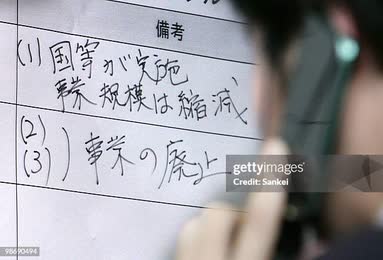 備考
(1) 国等が実施
事業規模は縮減
(2)
(3) ) 事業の廃止
gettyimages
Credit: Sankei
98690494